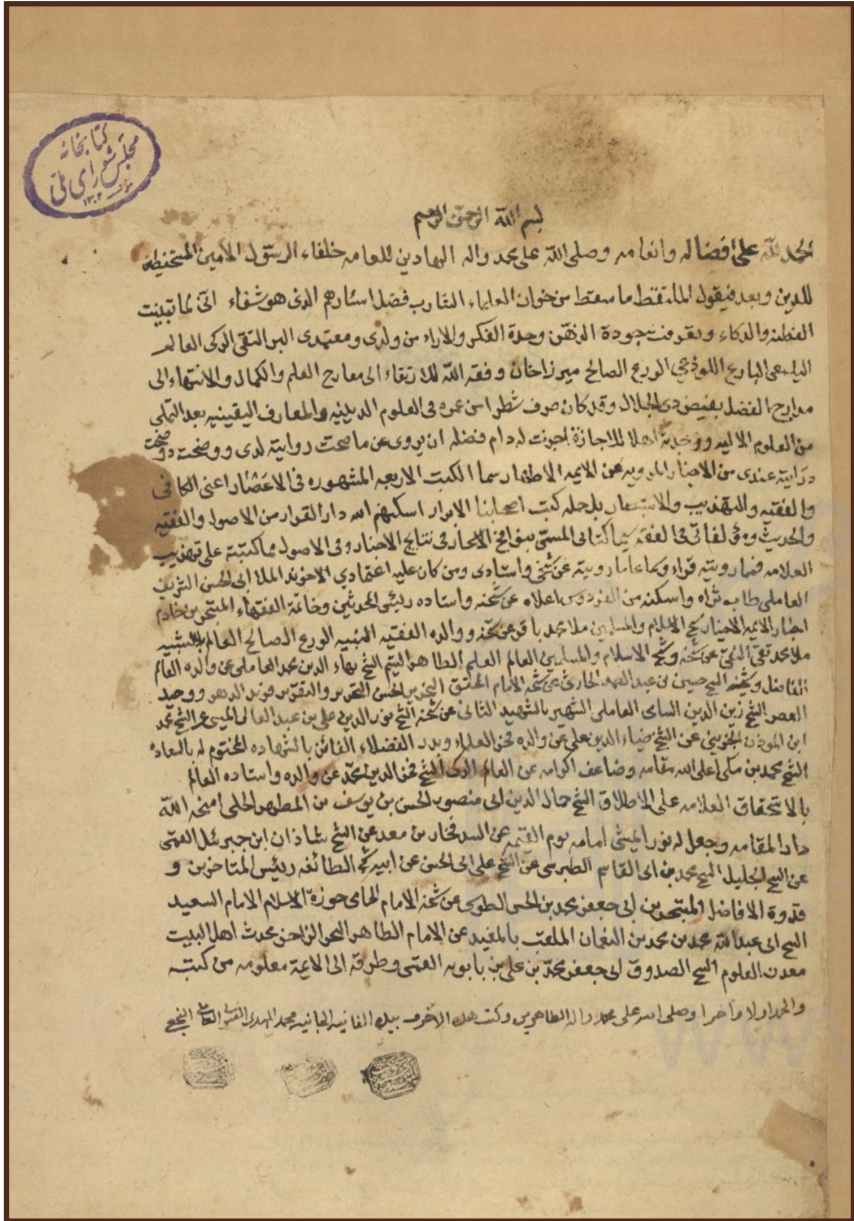 كتابخانه
مجلس شورای ملی
۱۳۰۲
بسم الله الرحمن الرحيم
الحمد لله على افضاله وانعامه وصلى الله على محمد واله الهادين للعامه خلفاء الرسول الامين المتحفظه
للدين وبعد فيقول الملتقط ما سقط من خوان العلماء الشارب فضل اسئارهم الذى هو شفاء انى لما تبينت
الفطنه والذكاء وتعرفت جودة الذهن وحدة الفكر والاراء من ولدى ومعتمدى البر التقى الزكى العالم
اليلمعى البارع اللوذعى الورع الصالح ميرزا خان وفقه الله للارتقاء الى معارج العلم والكمال والانتهاء الى
مدارج الفضل بفيض ذى الجلال وقد كان صرف شطرا من عمره فى العلوم الدينيه والمعارف اليقينيه بعد التملى
من العلوم الاليه ووجدته اهلا للاجازة اجزت له دام فضله ان يروى عن ما صحت روايته لدى ووضحت وصحت
درايته عندى من الاخبار المرويه عن الايمه الاطهار سيما الكتب الاربعه المشهوره فى الاعصار اعنى الكافى
والفقيه والتهذيب والاستبصار بل جمله كتب اصحابنا الابرار اسكنهم الله دار القرار من الاصول والفقه
والحديث ومؤلفاتى فى الفقه سيما كتابى المسمى بنتايج الاخبار وفى الاصول ما كتبته على تهذيب
العلامه فما رويته قراءة وسماعا ما رويته عن شيخى واستادى ومن كان عليه اعتمادى الاخوند الملا ابى الحسن الشريف
العاملى طاب ثراه واسكنه من الفردوس اعلاه عن شيخه واستاده رئيس المحدثين وخاتمة الفقهاء المتبحرين خادم
اخبار الايمه الاخيار شيخ الاسلام والمسلمين ملا محمد باقر عن شيخه ووالده الفقيه النبيه الورع الصالح العالم
ملا محمد تقى التقى عن شيخه شيخ الاسلام والمسلمين العالم العلم الطاهر الشيخ بهاء الدين محمد العاملى عن والده العالم
الفاضل وشيخه الشيخ حسين بن عبد الصمد الحارثى عن شيخه الامام المحقق النحرير الحسن التحرير والتقرير فريد الدهر ووحيد
العصر الشيخ زين الدين الشامى العاملى الشهير بالشهيد الثانى عن شيخه الشيخ نور الدين على بن عبد العالى الميسى عن الشيخ محمد
ابن المؤذن الجزينى عن الشيخ ضياء الدين على عن والده فخر العلماء وبدر الفضلاء الفائز بالشهاده المختوم له بالسعاده
الشيخ محمد بن مكى اعلى الله مقامه وضاعف اكرامه عن العالم الزكى الشيخ فخر الدين محمد عن والده واستاده العالم
بالاستحقاق العلامه على الاطلاق الشيخ جمال الدين ابى منصور الحسن بن يوسف بن المطهر الحلى امنحه الله
دار المقامه وجعل له نورا يمشى امامه يوم القيمه عن السيد فخار بن معد عن الشيخ شاذان ابن جبرئيل القمى
عن الشيخ الجليل الشيخ محمد بن ابى القاسم الطبرسى عن الشيخ على ابى الحسن عن ابيه شيخ الطائفه رئيس المتاخرين و
قدوة الافاضل المتبحرين ابى جعفر محمد بن الحسن الطوسى عن شيخه الامام الحامى حوزة الاسلام الامام السعيد
الشيخ ابى عبد الله محمد بن محمد بن النعمان الملقب بالمفيد عن الامام الطاهر البحر الزاخر محدث اهل البيت
معدن العلوم الشيخ الصدوق ابى جعفر محمد بن على بن بابويه القمى وطرقه الى الائمة معلومه من كتبه
والحمد اولا واخرا وصلى الله على محمد واله الطاهرين وكتب هذه الاحرف بيده الفانيه الجانيه محمد المهدى الفتونى العاملى النجفى